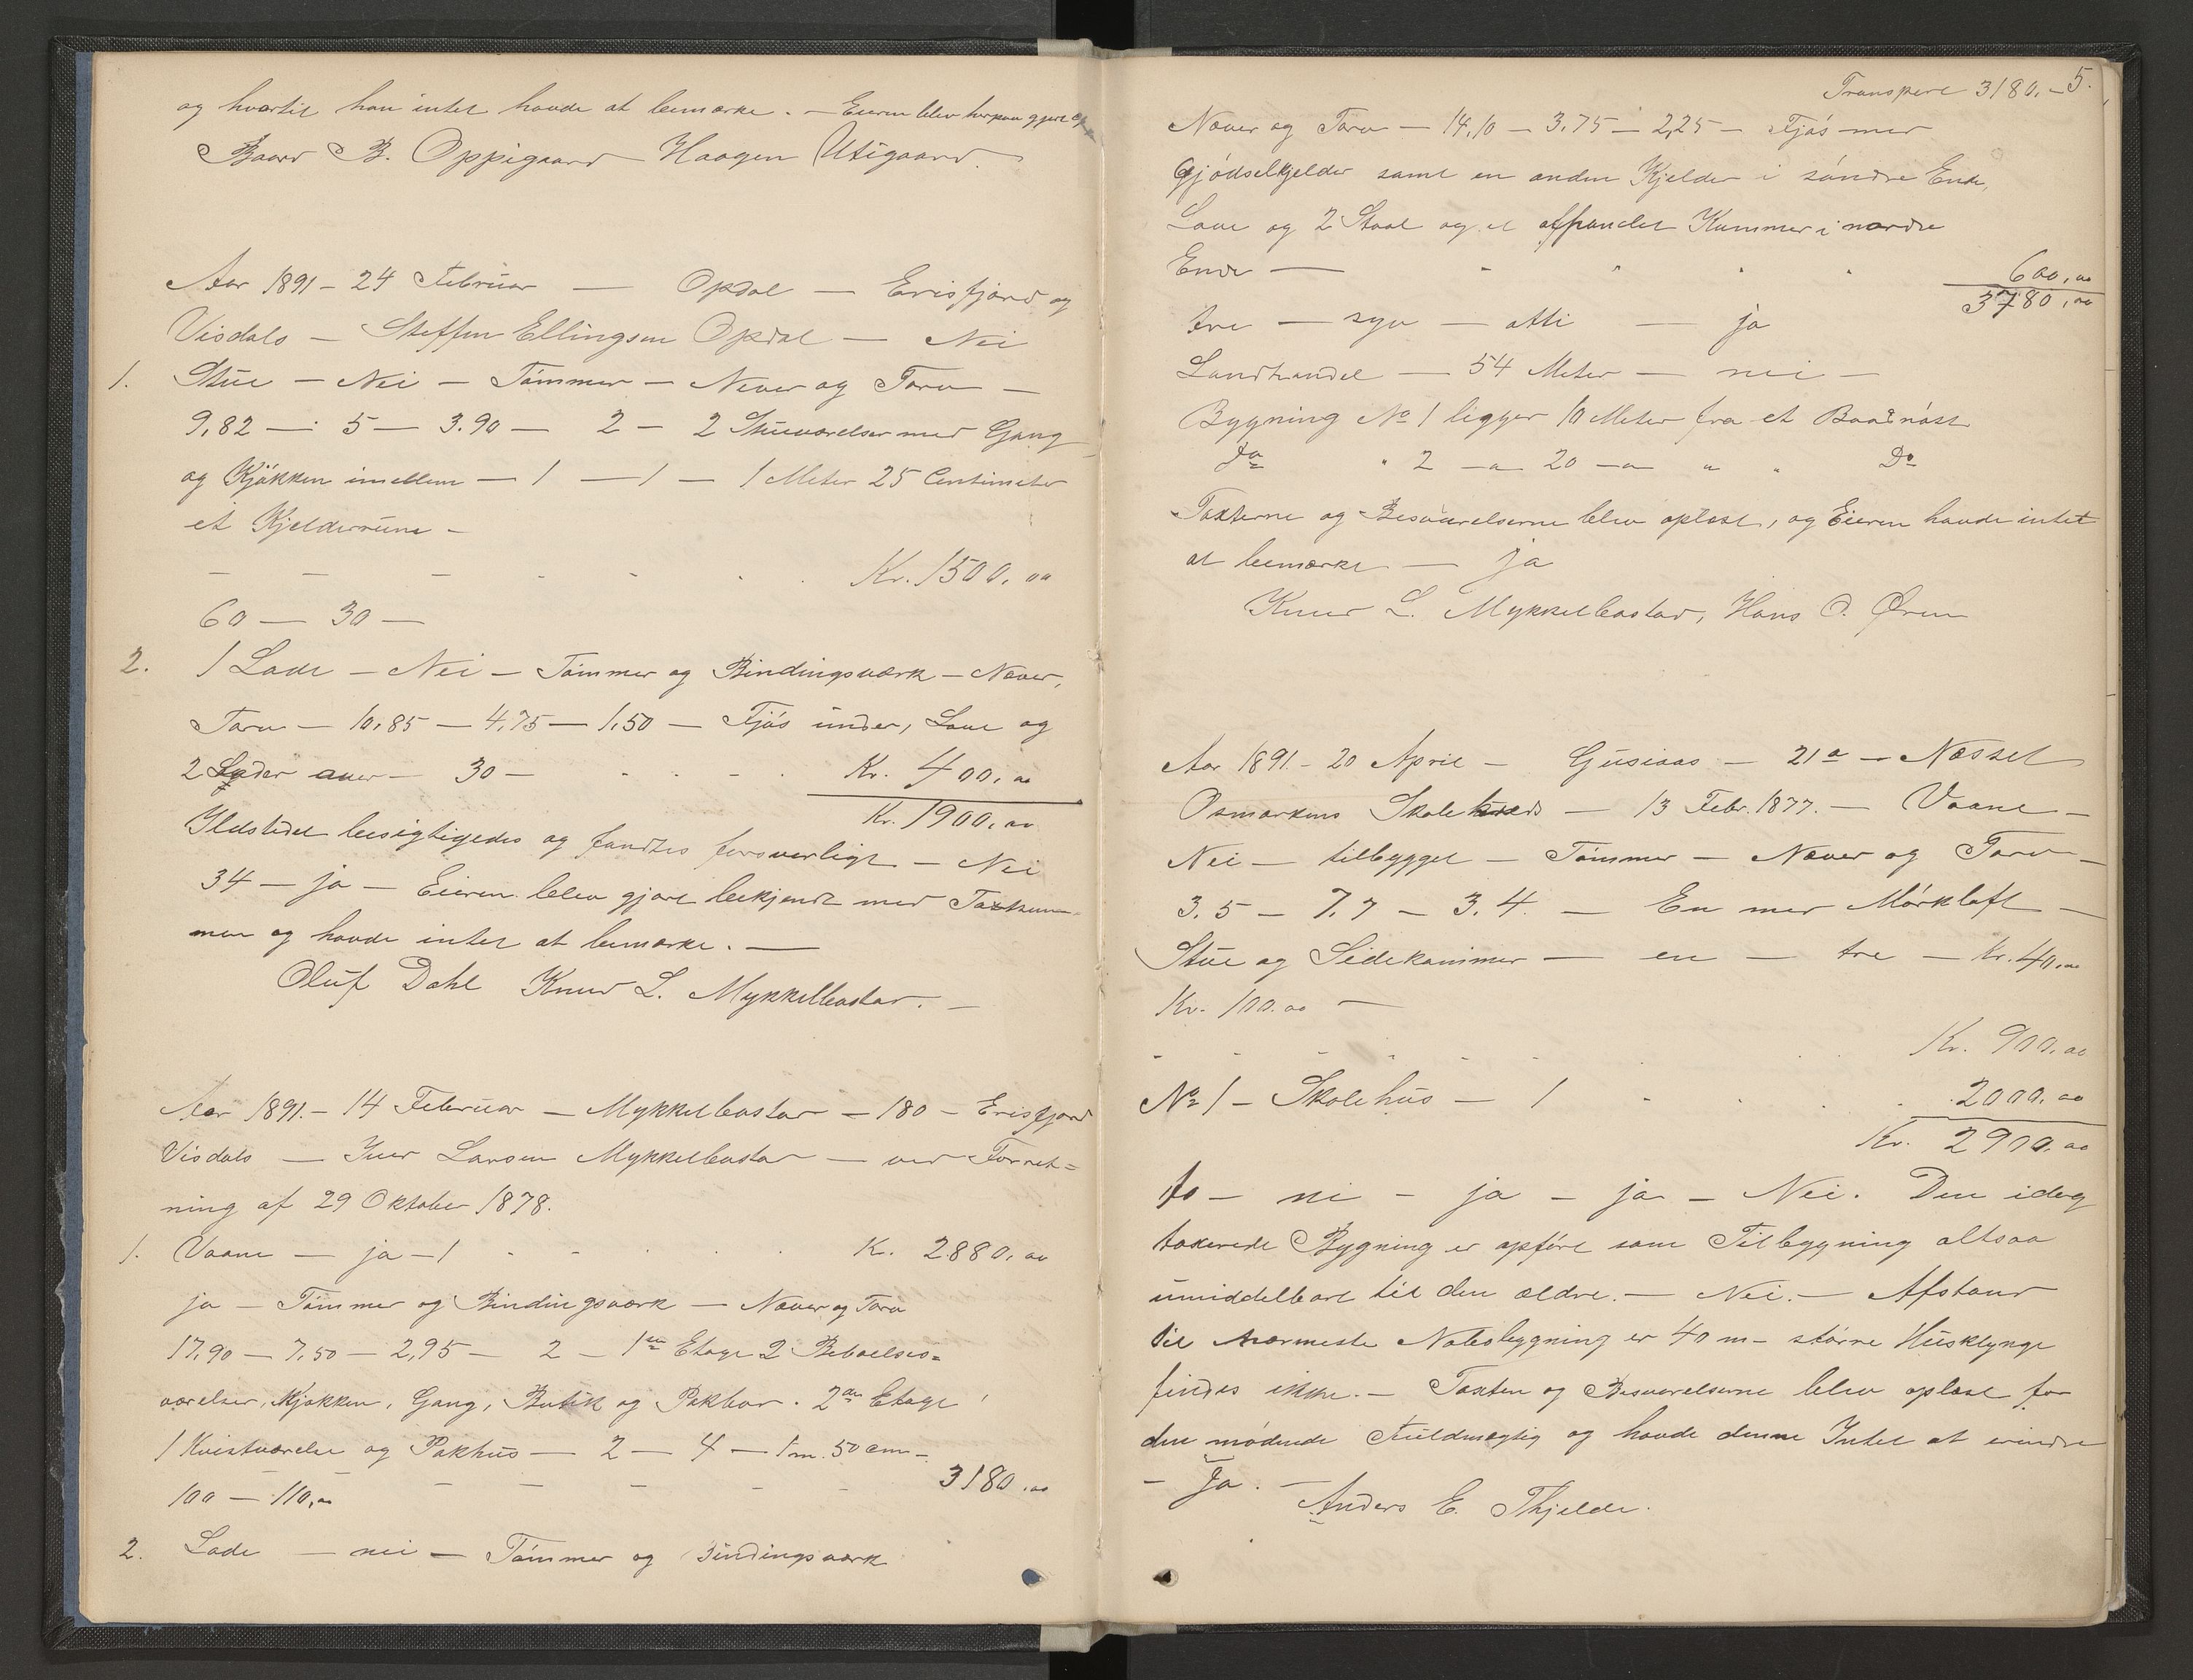 og hvortil han intet havde at bemærke. – Eieren blev herpaa gjort
Baard B. Oppigaard Haagen Utigaard.
Aar 1891 – 24 Februar — Opdal — Erisfjord og
Visdals — Steffen Ellingsen Opdal — Nei
1. Stue — Nei — Tømmer — Never og Torv —
9,82 — 5 — 3.90 — 2 — 2 Stueværelser med Gang
og Kjøkken imellem — 1 — 1 — 1 Meter 25 Centimeter
et Kjelderrum –
Kr. 1500,00
60 — 30 —
2. 1 Lade — Nei — Tømmer og Bindingsværk — Næver,
Torv — 10,85 — 4,75 — 1,50 — Fjøs under, Lave og
2 Lader over — 30 — Kr. 400,00
Kr. 1900,00
Ildstedet besigtigedes og fandtes forsvarligt — Nei
34 — ja — Eieren blev gjort bekjendt med Taxtsum-
men og havde intet at bemærke. —
Oluf Dahl Knud L. Mykkelbostad. –
Aar 1891. – 14 Februar — Mykkelbostad — 180 – Erisfjord
Visdals — Iver Larsen Mykkelbostad — ved Forret=
ning af 29 Oktober 1878.
1. Vaane — ja — 1 Kr. 2880,00
ja — Tømmer og Bindingsværk — Næver og Torv
17,90 — 7,50 — 2,95 — 2 — 1ste Etage 2 Beboelses=
værelser, Kjøkken, Gang, Butik og Pakbod. 2den Etage
1 Kvistværelse og Pakhus — 2 — 4 — 1 m. 50 cm –
100 — 110,00 3180,00
2. Lade — nei — Tømmer og Bindingsværk
Transport 3180,– 5.
Næver og Torv — 14,10 — 3.75 — 2,25 — Fjøs med
Gjødselkjelder samt en anden Kjelder i søndre Ende,
Lave og 2 Staal og et afpandet Kammer i nordre
Ende — 600,00
3780,00
tre — syv — otti — ja
Landhandel — 54 Meter — nei —
Bygning No 1 ligger 10 Meter fra et Baadnøst
Do " 2 — " 20 — " " " Do
Taxterne og Besvarelserne blev oplæst, og Eieren havde intet
at bemærke — ja
Knud L. Mykkelbostad, Hans O. Øren
Aar 1891. – 20 April – Gusiaas — 21a — Nesset
Osmarkens Skolekreds — 13 Febr. 1877. — Vaane —
Nei — tilbygget — Tømmer — Næver og Torv —
3.5 — 7.7 — 3.4. — En med Mørkloft —
Stue og Sidekammer — en — tre — kr. 40,00
Kr. 100.00 —
Kr. 900,00
No 1 – Skolehus — 1 2000,00
Kr. 2900,00
to — ni — ja — ja — Nei. Den idag
taxerede Bygning er opført som Tilbygning altsaa
umiddelbart til den ældre. — Nei. — Afstand
til nærmeste Nabobygning er 40 m – større Husklynge
findes ikke. — Taxten og Besvarelserne blev oplæst for
den mødende Fuldmægtig og havde denne Intet at erindre
– Ja. –
Anders E. Thjelde.